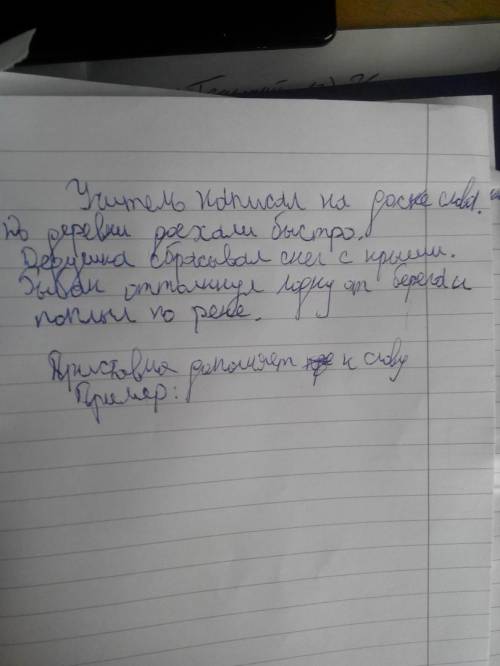 Учитель написал на доске слова.
До деревни доехали быстро.
Дедушка сбрасывал снег с крыши.
оттолкнул лодку от берега и
поплыл по реке.
Приставка дополняет к слову
Пример: